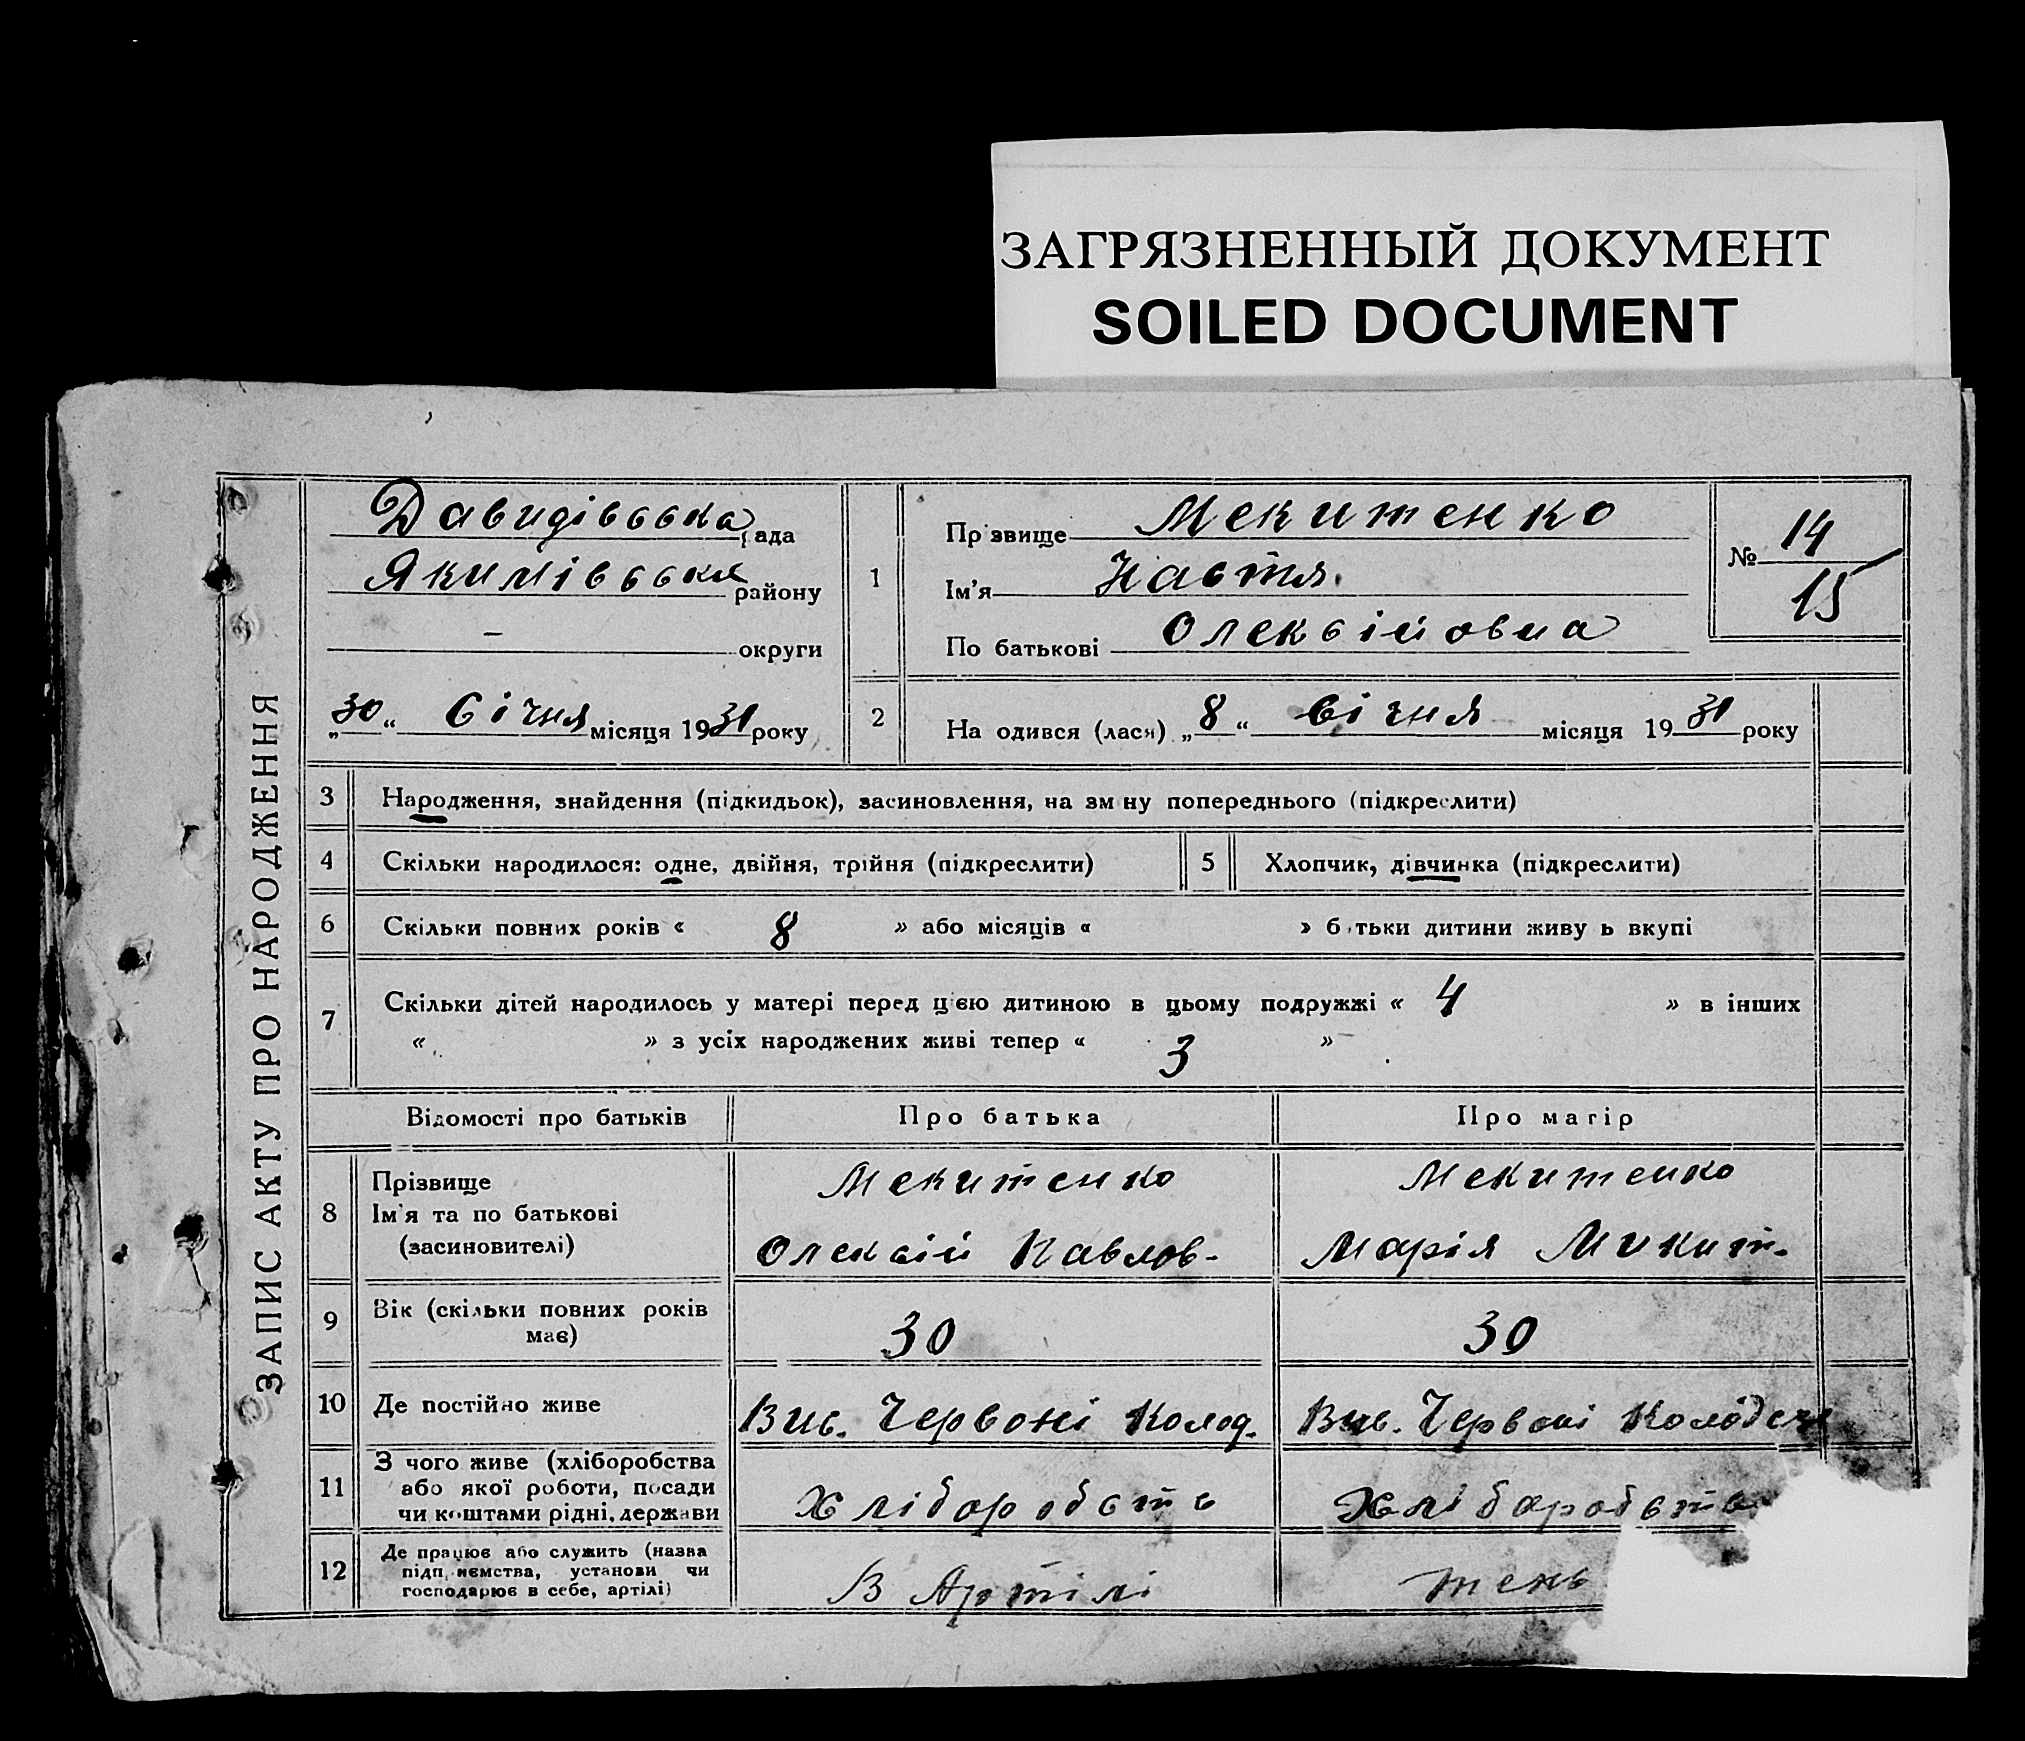 ЗАГРЯЗНЕННЫЙ ДОКУМЕНТ
SOILED DOCUMENT
ЗАПИС АКТУ ПРО НАРОДЖЕННЯ
Давидівська рада
Якимівська району
— округи
„30“ Січня місяця 1931 року
1
Прізвище Мекитенко
Ім'я Настя
По батькові Олексійовна
№ 14
15
2 На одився (лася) „8“ Січня місяця 1931 року
3 Народження, знайдення (підкидьок), засиновлення, на зм ну попереднього (підкреслити)
4 Скільки народилося: одне, двійня, трійня (підкреслити) 5 Хлопчик, дівчинка (підкреслити)
6 Скільки повних років « 8 » або місяців « » б тьки дитини живу ь вкупі
7 Скільки дітей народилось у матері перед цією дитиною в цьому подружжі « 4 » в інших
« » з усіх народжених живі тепер « 3 »
Відомості про батьків Про батька Про матір
8 Прізвище Мекитенко Мекитенко
Ім'я та по батькові
(засиновителі) Олексій Павлов- Марія Микит-
9 Вік (скільки повних років
має) 30 30
10 Де постійно живе Вис. Червоні Колод. Вис. Червоні Колодезі
11 З чого живе (хліборобства
або якої роботи, посади
чи коштами рідні, держави Хліборобств Хліборобств
12 Де працює або служить (назва
підп иємства, установи чи
господарює в себе, артілі) В Артілі